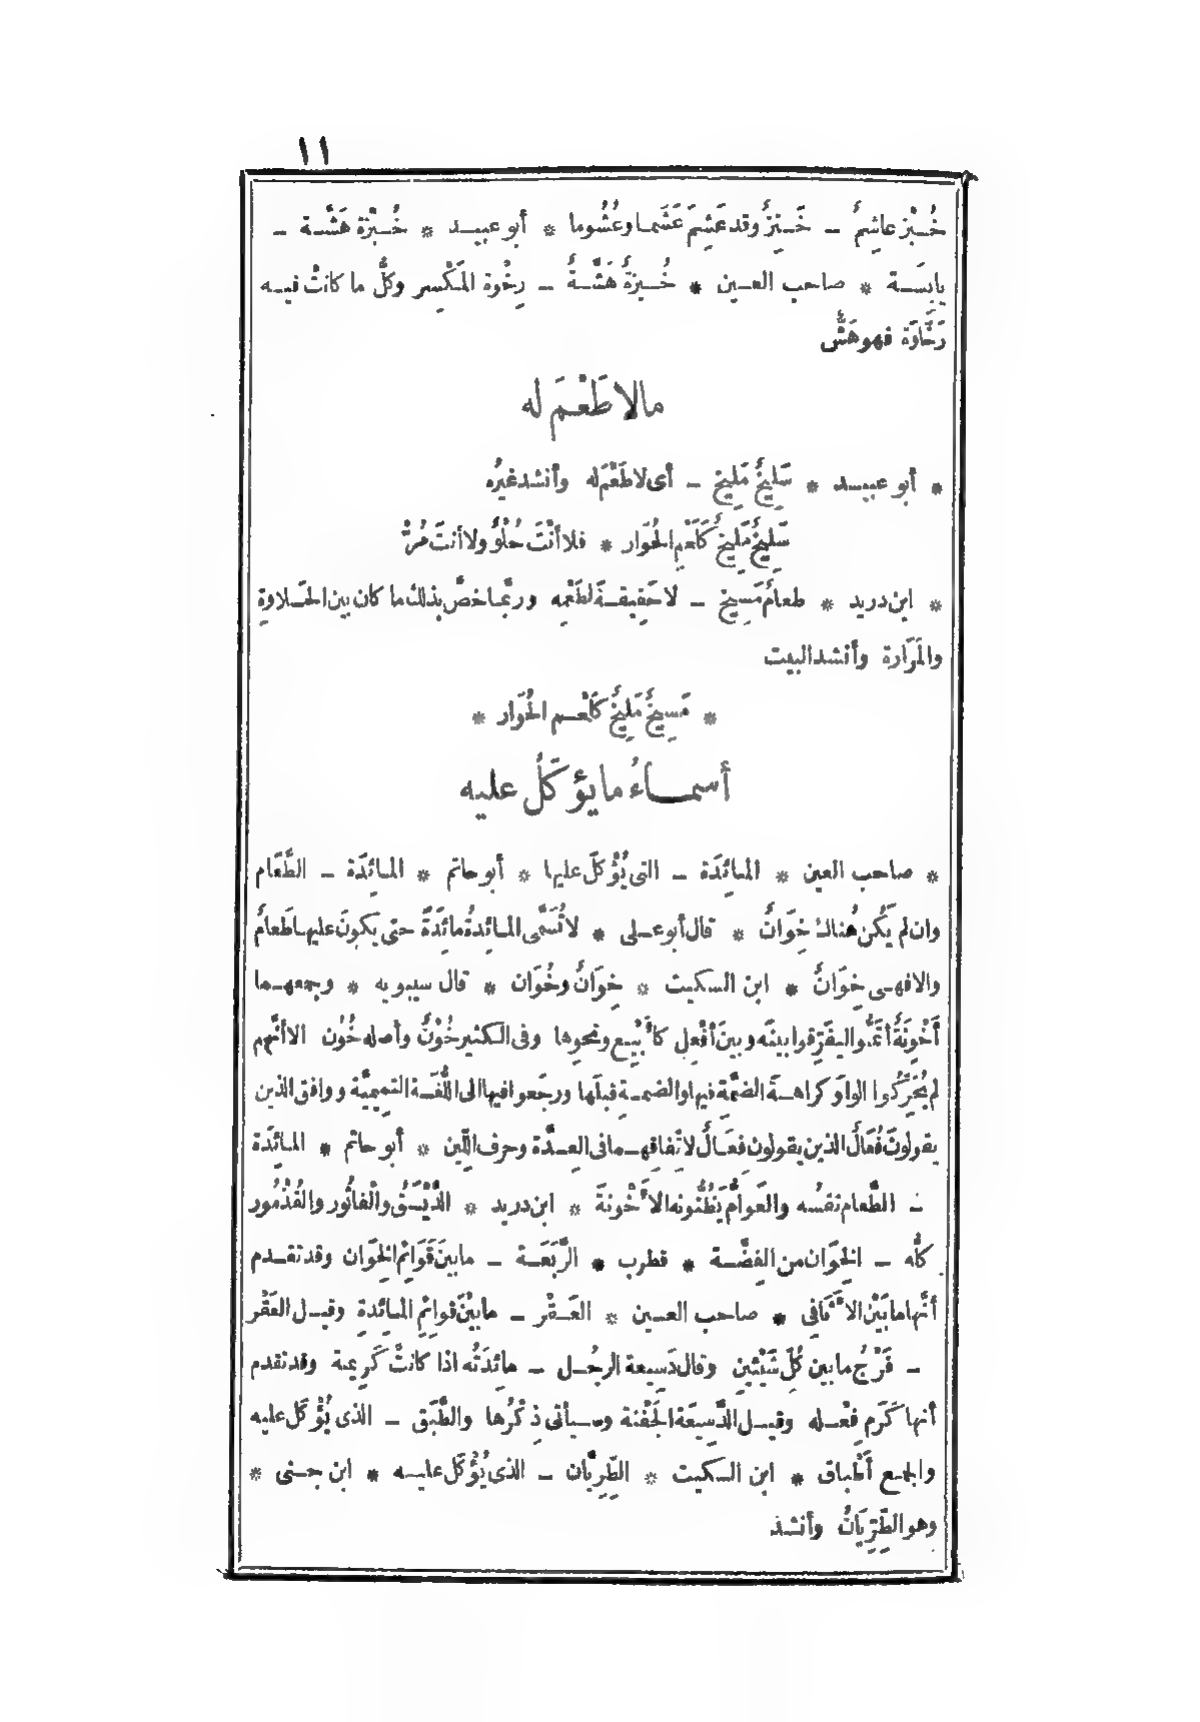 ١١
خُبْز عاشِمٌ ـ خَنِزٌ وقد عَشِمَ عَشَما وعُشُوما * أبو عبيد * خُبْزة هَشَّة ـ
يابِسَة * صاحب العين * خُبزةٌ هَشَّةٌ ـ رِخْوة المَكْسِر وكلُّ ما كانتْ فيه
رَخَاوَة فهو هَشٌّ
مالا طَعْمَ له
* أبو عبيد * سَلِيخٌ مَلِيخ ـ أى لا طَعْمَ له وأنشد غيرُه
سَلِيخٌ مَلِيخٌ كَلَحْمِ الحُوَار * فلا أنْتَ حُلْوٌ ولا أنتَ مُرْ
* ابن دريد * طعامٌ مَسِيخ ـ لا حَقِيقة لطَعْمِه وربَّما خصَّ بذلك ما كان بين الحَلاوةِ
والمَرَارة وأنشد البيت
* مَسِيخٌ مَلِيخٌ كَلَحْم الحُوَار *
أسماءُ ما يؤكَلُ عليه
* صاحب العين * المائِدَة ـ التى يُؤْكَلُ عليها * أبو حاتم * المائِدَة ـ الطَّعَام
وان لم يَكُن هُناك خِوَانٌ * قال أبو على * لا تُسَمَّى المائِدةُ مائِدَةً حتى يكونَ عليها طَعامٌ
والا فهى خِوَانٌ * ابن السكيت * خِوَانٌ وخُوَان * قال سيبويه * وجمعهما
أَخْوِنَةٌ أتَمُّوا ليفَرِّقوا بينَه وبينَ أفْعِل كأَبْيِع ونحوِها وفى الكثير خُوْنٌ وأصله خُوُن الا أنَّهم
لم يُحَرِّكُوا الواو كراهةَ الضمَّة فيها والضمةِ قبلَها ورجَعوا فيها الى اللُّغَة التميميَّة ووافق الذين
يقولونَ فُعَالٌ الذين يقولون فِعَالٌ لاتِّفاقِهما فى العِدَّة وحرف اللِّين * أبو حاتم * المائدَة
ـ الطَّعام نفسُه والعَوامُّ يَظُنُّونه الأَخْونةَ * ابن دريد * الدَّيْسَقُ والْفَاثُور والقُذْمُور
كلُّه ـ الخِوَان من الفِضَّة * قطرب * الرَّبَعَة ـ ما بينَ قَوَائِم الخِوَان وقد تقدم
أنَّها ما بَيْنَ الأَثَافِى * صاحب العين * العَقْر ـ ما بَيْنَ قوائِمِ المائِدةِ وقيل العَقْر
ـ فَرْجُ ما بين كُلّ شَيْئينِ وقال دَسِيعة الرجُل ـ مائِدَتُه اذا كانتْ كَرِيمة وقد تقدم
أنها كَرَم فِعْله وقيل الدَّسِيعَة الجَفْنة وسيأتى ذِكْرُها والطَّبَق ـ الذى يُؤْكَل عليه
والجمع أَطْباق * ابن السكيت * الطِّرِيَّان ـ الذى يُؤْكَل عليه * ابن جنى *
وهو الطِّرِيَانُ وأنشد